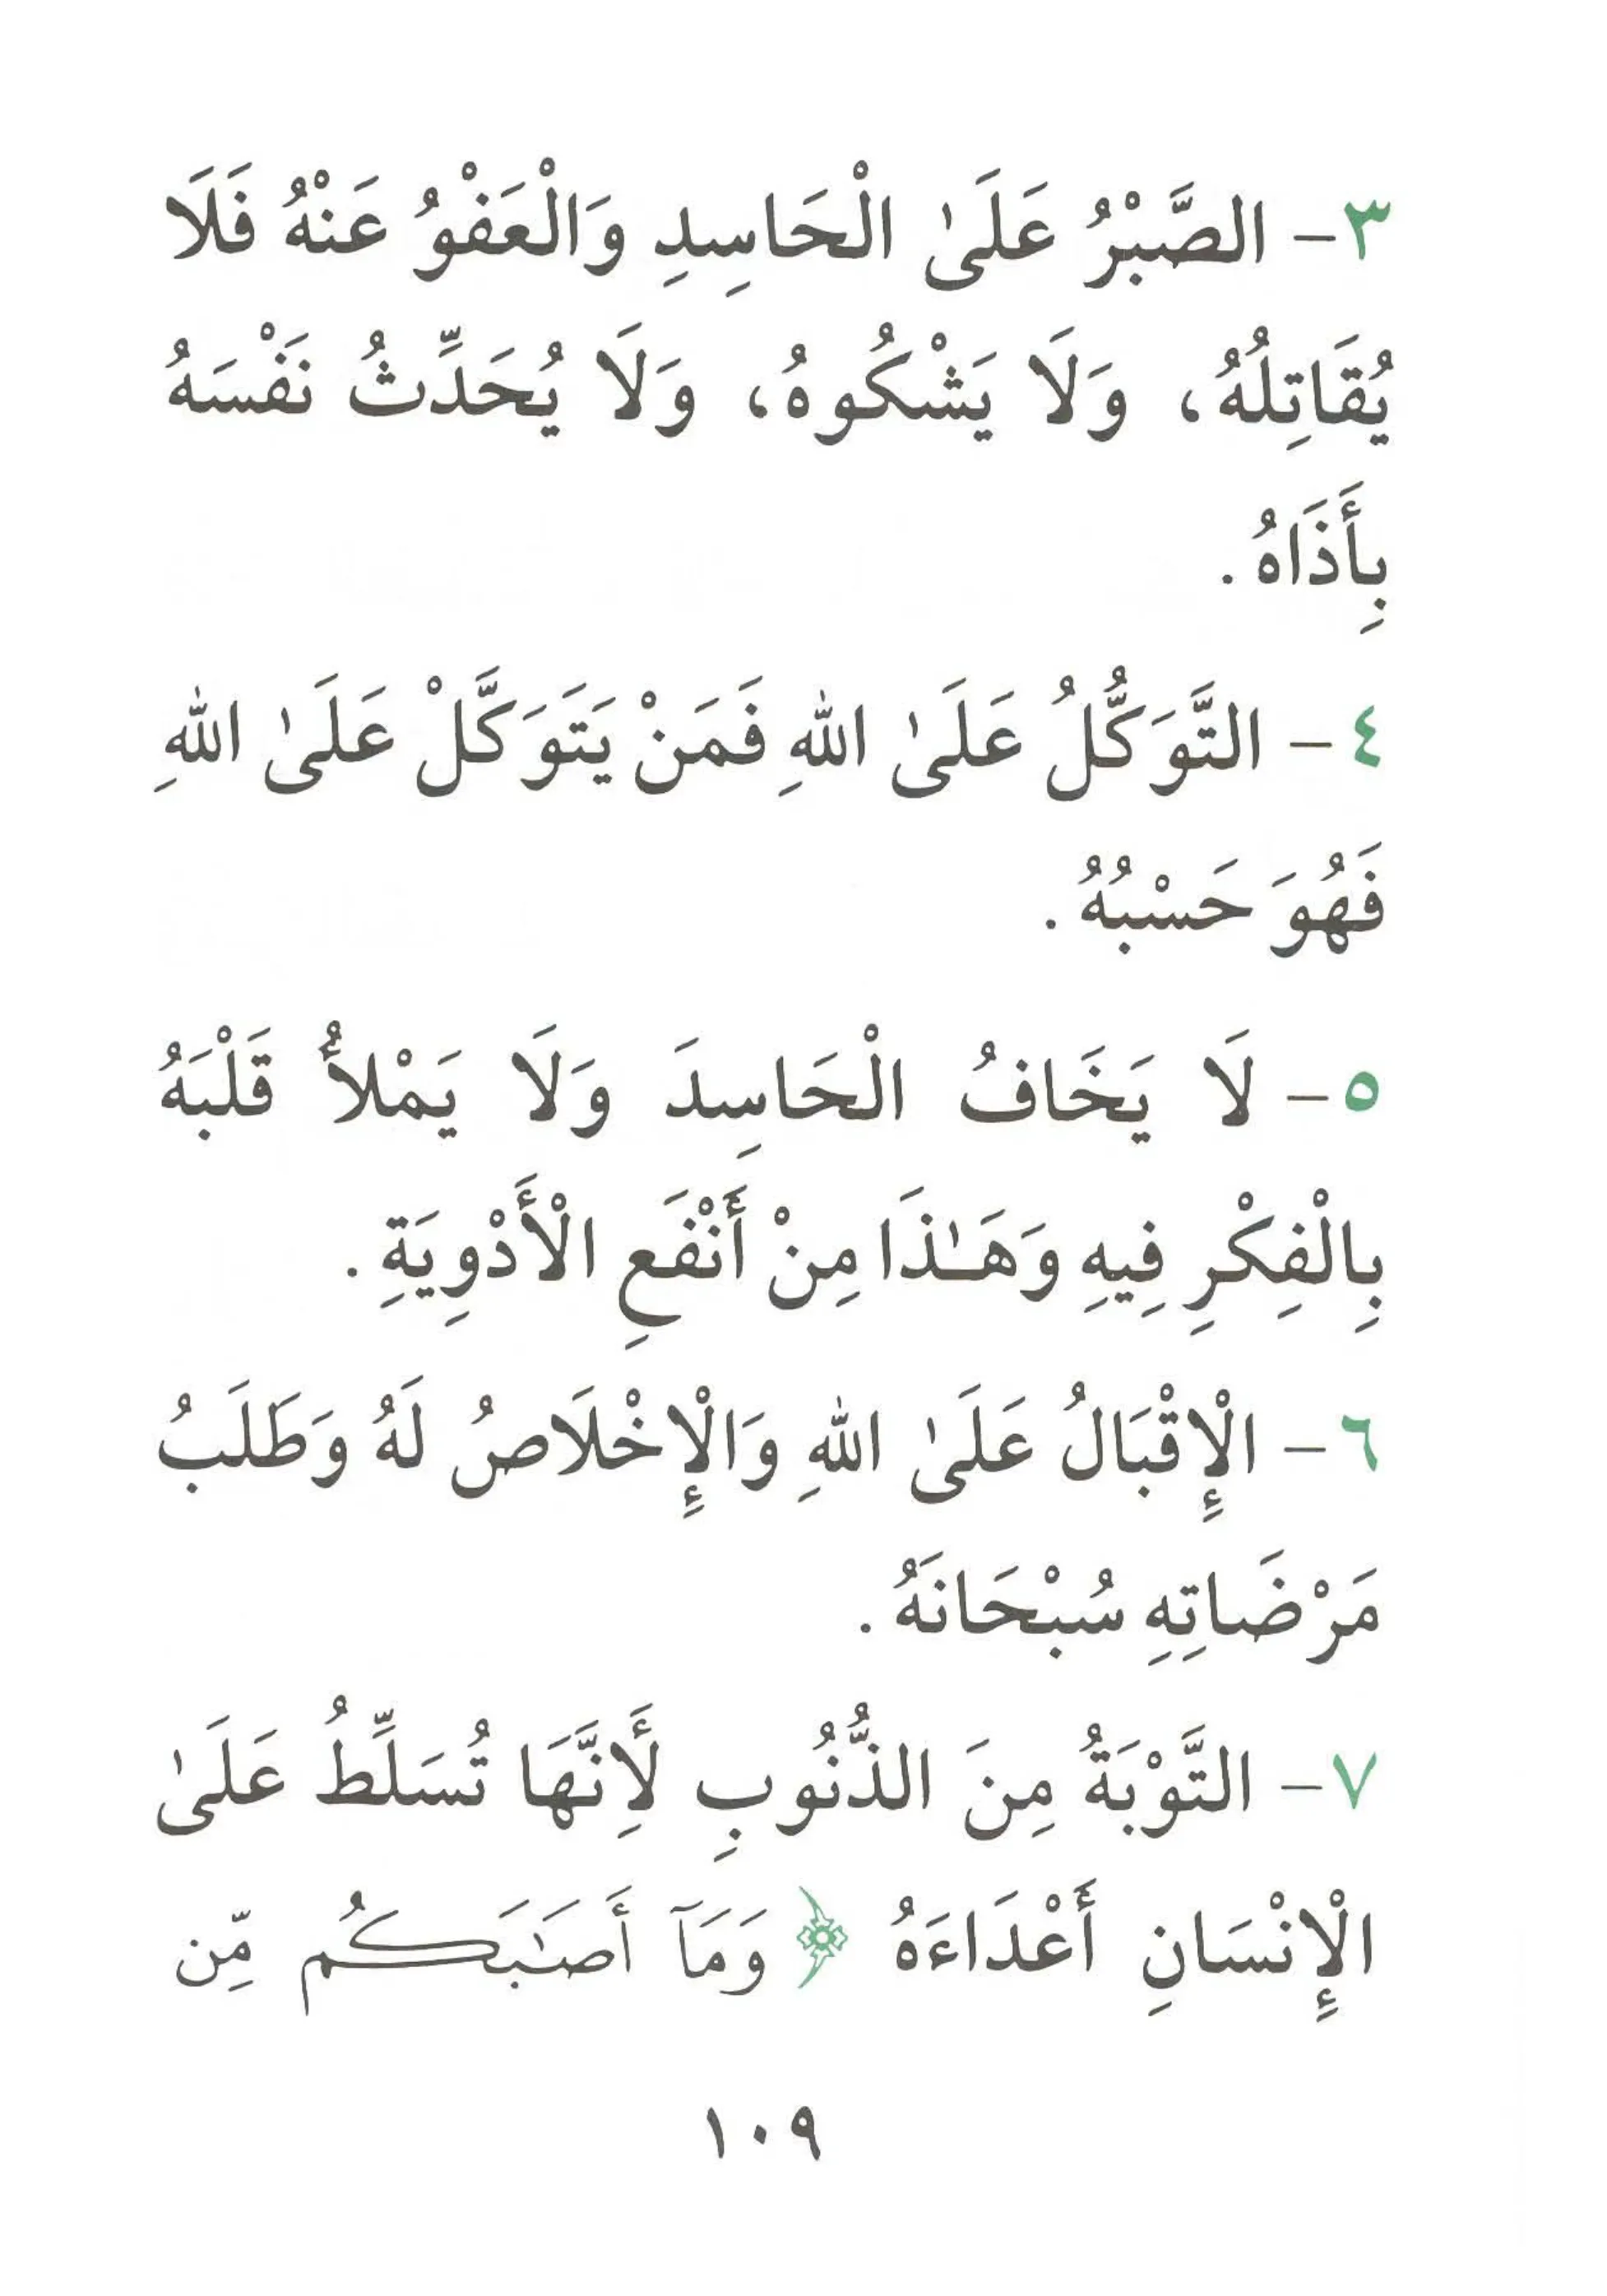 ٣- الصَّبْرُ عَلَىٰ الْحَاسِدِ وَالْعَفْوُ عَنْهُ فَلَا
يُقَاتِلُهُ، وَلَا يَشْكُوهُ، وَلَا يُحَدِّثُ نَفْسَهُ
بِأَذَاهُ.
٤- التَّوَكُّلُ عَلَىٰ اللهِ فَمَنْ يَتَوَكَّلْ عَلَىٰ اللهِ
فَهُوَ حَسْبُهُ.
٥- لَا يَخَافُ الْحَاسِدَ وَلَا يَمْلأُ قَلْبَهُ
بِالْفِكْرِ فِيهِ وَهَـٰذَا مِنْ أَنْفَعِ الْأَدْوِيَةِ.
٦- الْإِقْبَالُ عَلَىٰ اللهِ وَالْإِخْلَاصُ لَهُ وَطَلَبُ
مَرْضَاتِهِ سُبْحَانَهُ.
٧- التَّوْبَةُ مِنَ الذُّنُوبِ لَأِنَّهَا تُسَلِّطُ عَلَىٰ
الْإِنْسَانِ أَعْدَاءَهُ ﴿ وَمَآ أَصَـٰبَكُم مِّن
١٠٩